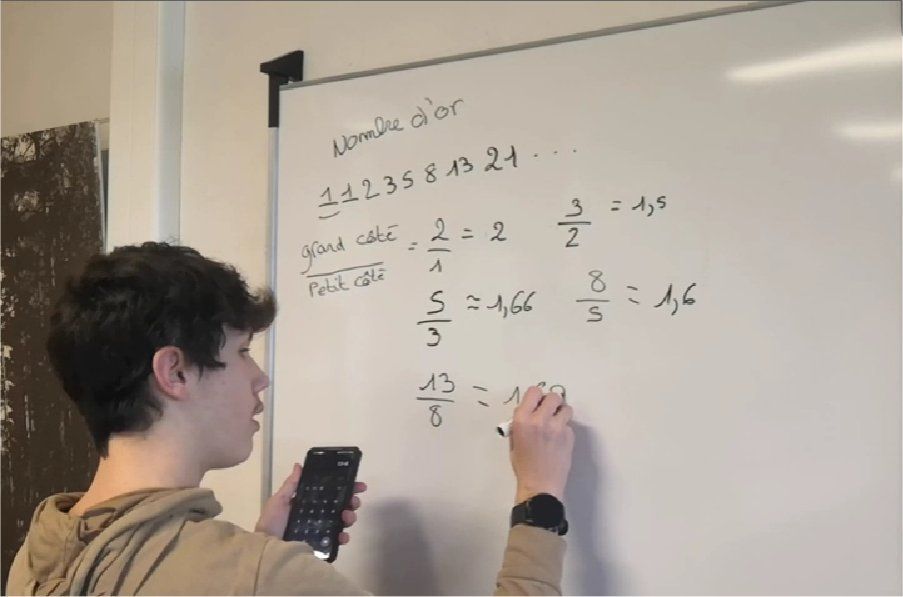 Nombre d'or
1 1 2 3 5 8 13 21 ...
grand côté / Petit côté = 2/1 = 2 3/2 = 1,5
5/3 ≈ 1,66 8/5 = 1,6
13/8 =